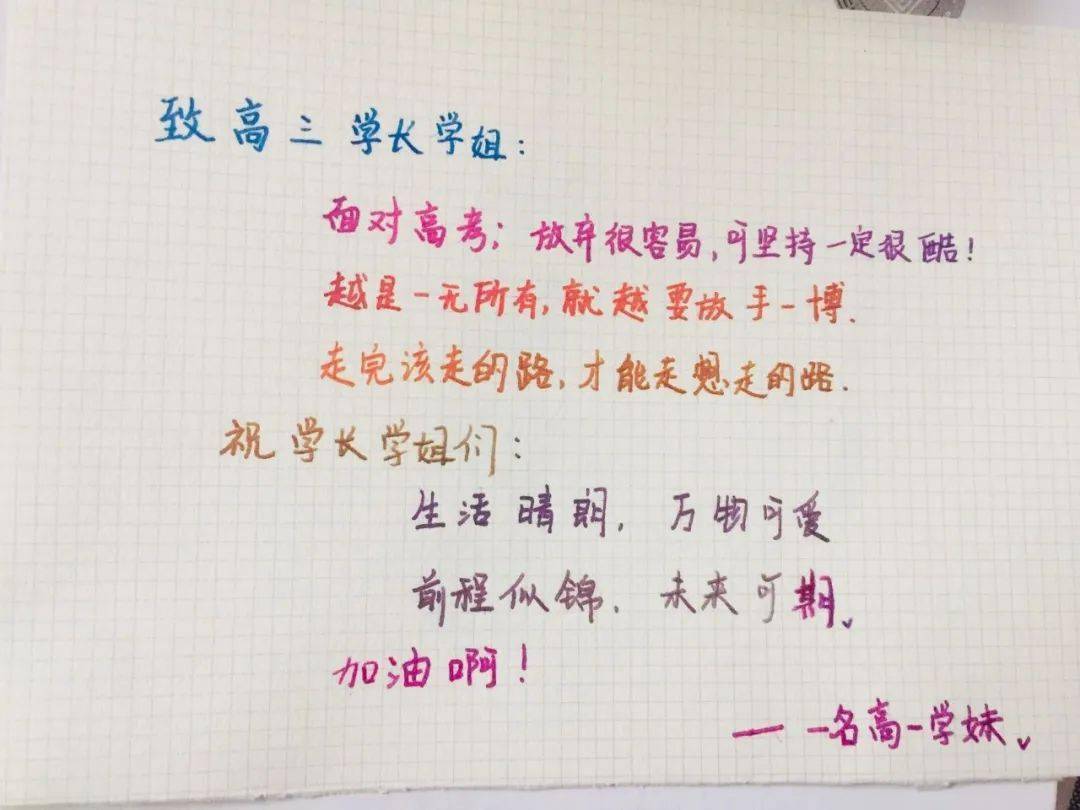 致高三学长学姐：
面对高考；放弃很容易，可坚持一定很酷！
越是一无所有，就越要放手一博.
走完该走的路，才能走想走的路.
祝学长学姐们：
生活晴朗，万物可爱
前程似锦，未来可期、
加油啊！
—— 一名高一学妹、